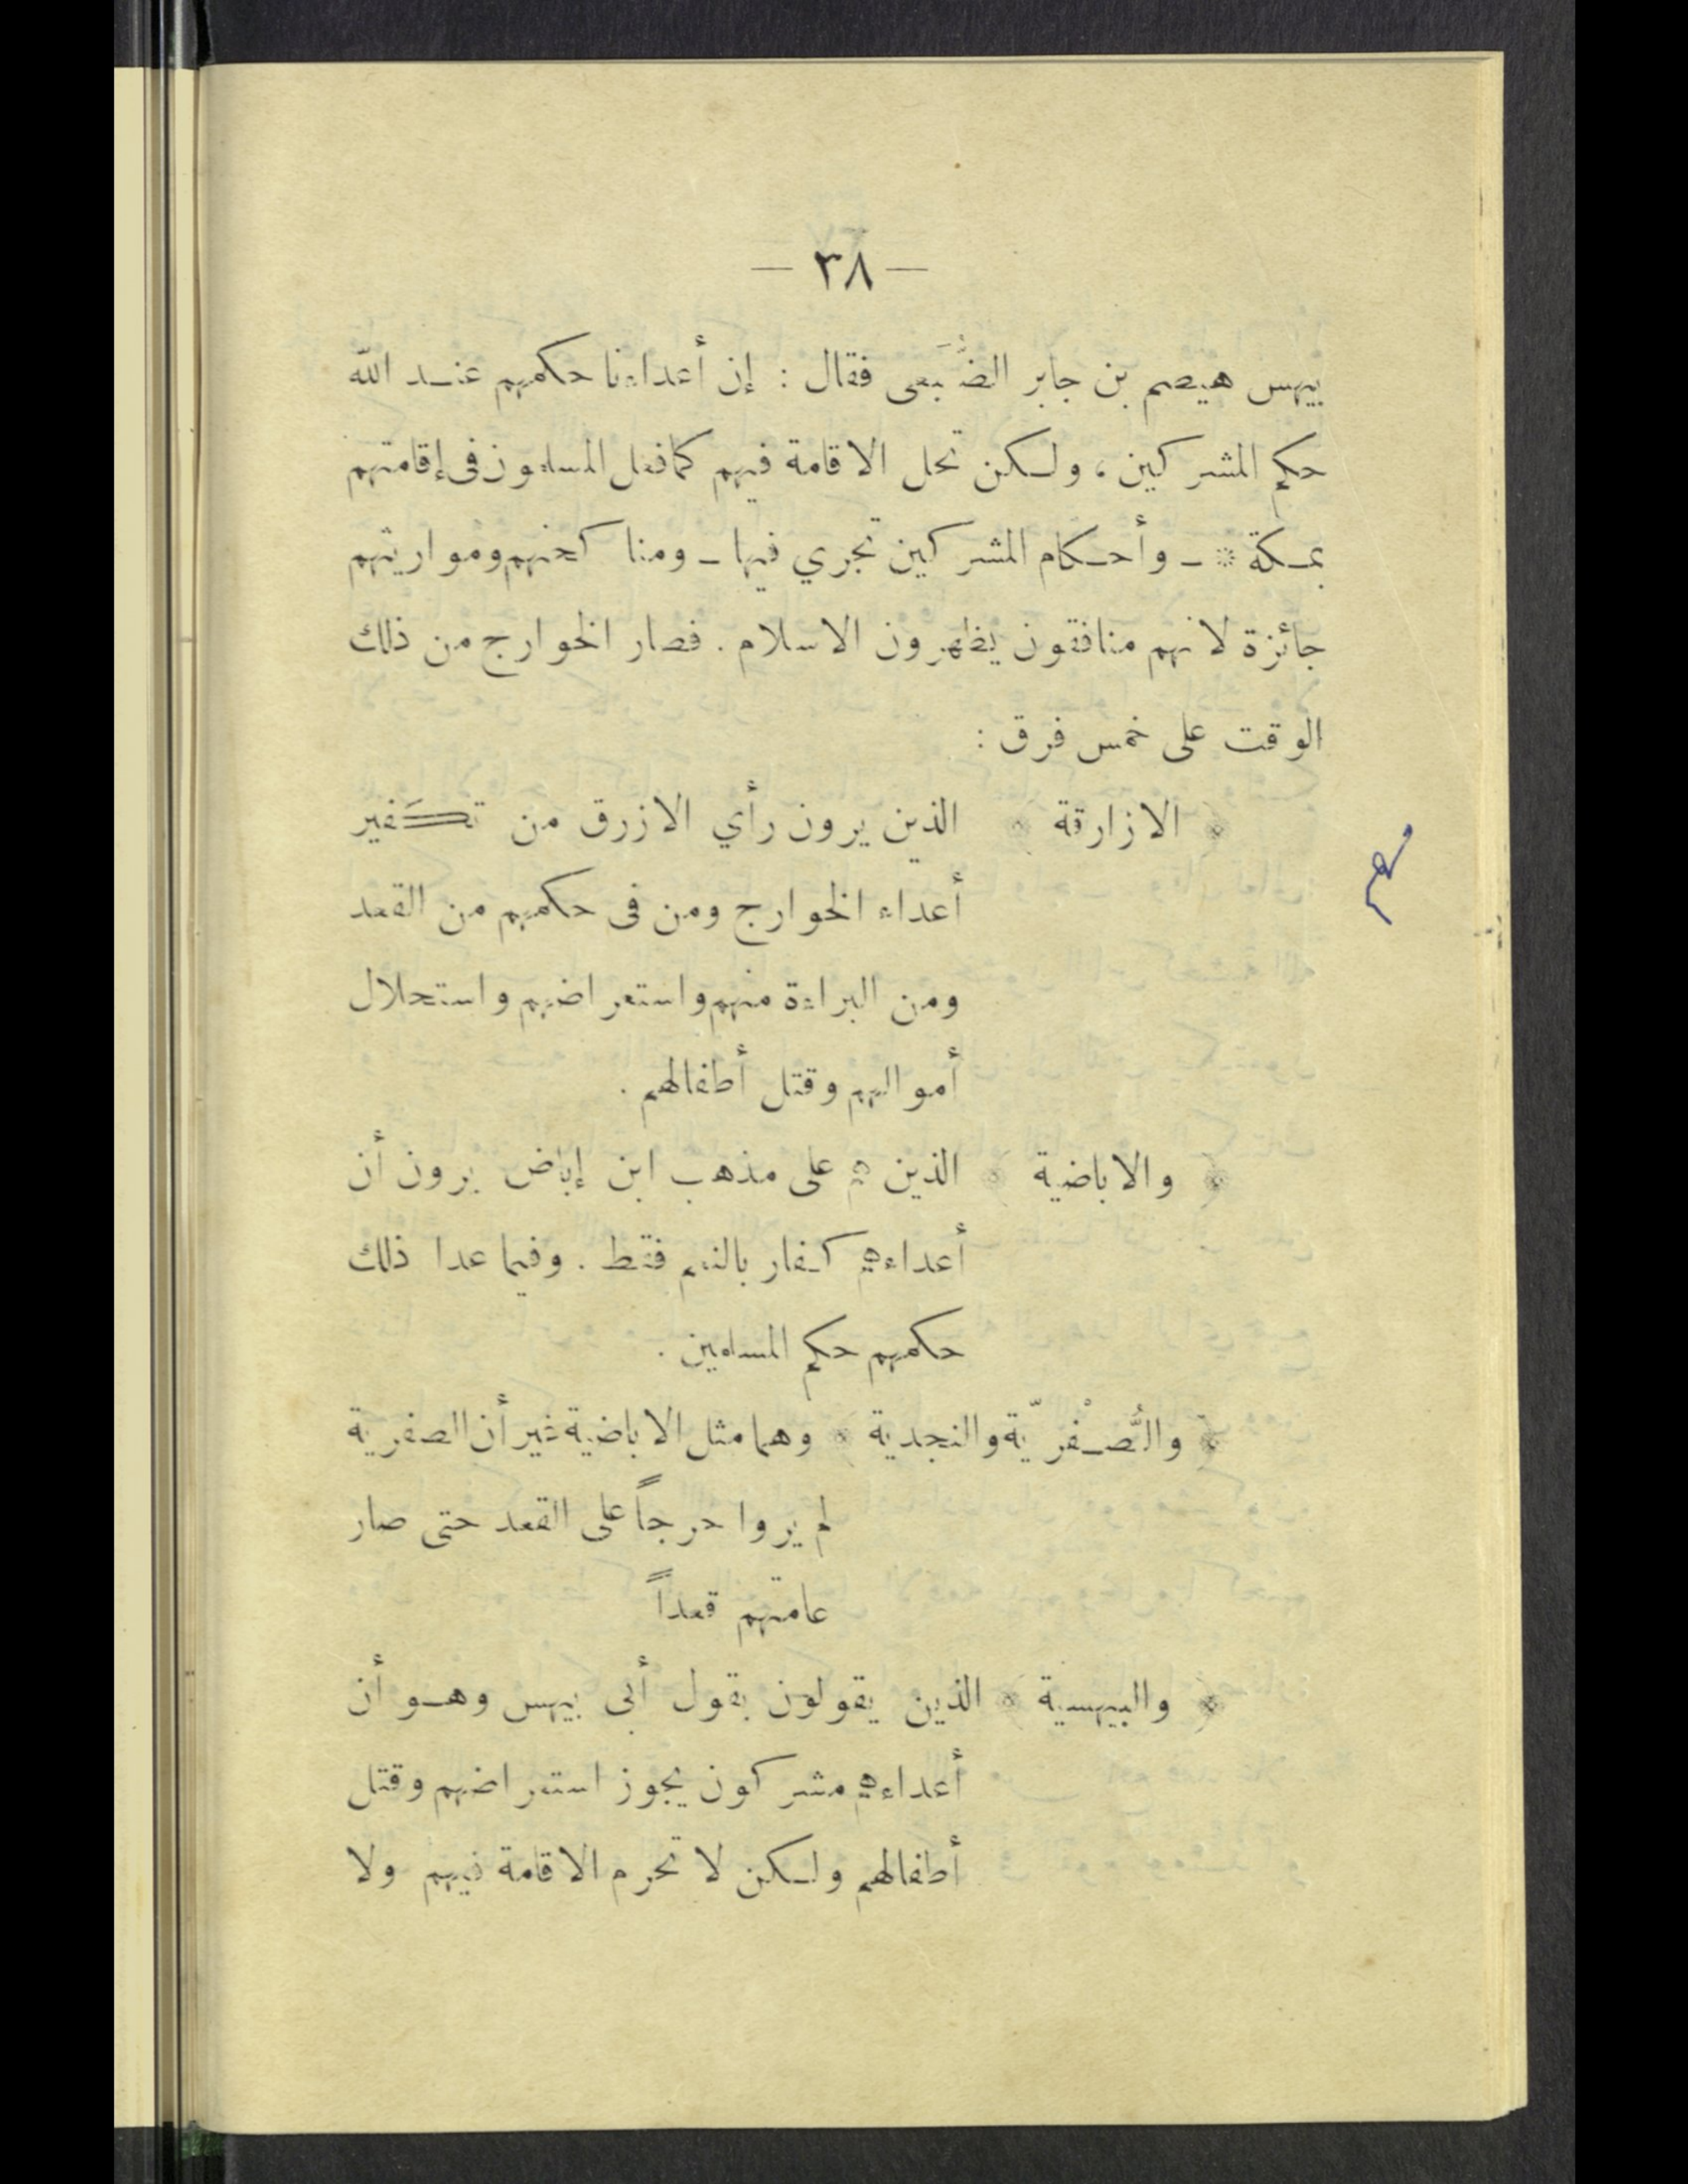 — ٣٨ —
بيهس هيصم بن جابر الضُّبَعى فقال : إن أعداءنا حكمهم عند الله
حكم المشركين ، ولكن تحل الاقامة فيهم كما فعل المسلمون فى إقامتهم
بمكة * - وأحكام المشركين تجري فيها - ومناكحتهم ومواريثهم
جائزة لانهم منافقون يظهرون الاسلام . فصار الخوارج من ذلك
الوقت على خمس فرق :
﴿ الازارقة ﴾ الذين يرون رأي الازرق من تكَفير
أعداء الخوارج ومن فى حكمهم من القعد
ومن البراءة منهم واستعراضهم واستحلال
أموالهم وقتل أطفالهم .
﴿ والاباضية ﴾ الذين هم على مذهب ابن إباض يرون أن
أعداءهم كفار بالنعم فقط . وفيما عدا ذلك
حكمهم حكم المسلمين .
﴿ والصُّفْريّة والنجدية ﴾ وهما مثل الاباضية غير أن الصفرية
لم يروا حرجاً على القعد حتى صار
عامتهم قعداً
﴿ والبيهسية ﴾ الذين يقولون بقول أبى بيهس وهو أن
أعداءهم مشركون يجوز استعراضهم وقتل
أطفالهم ولكن لا تحرم الاقامة فيهم ولا